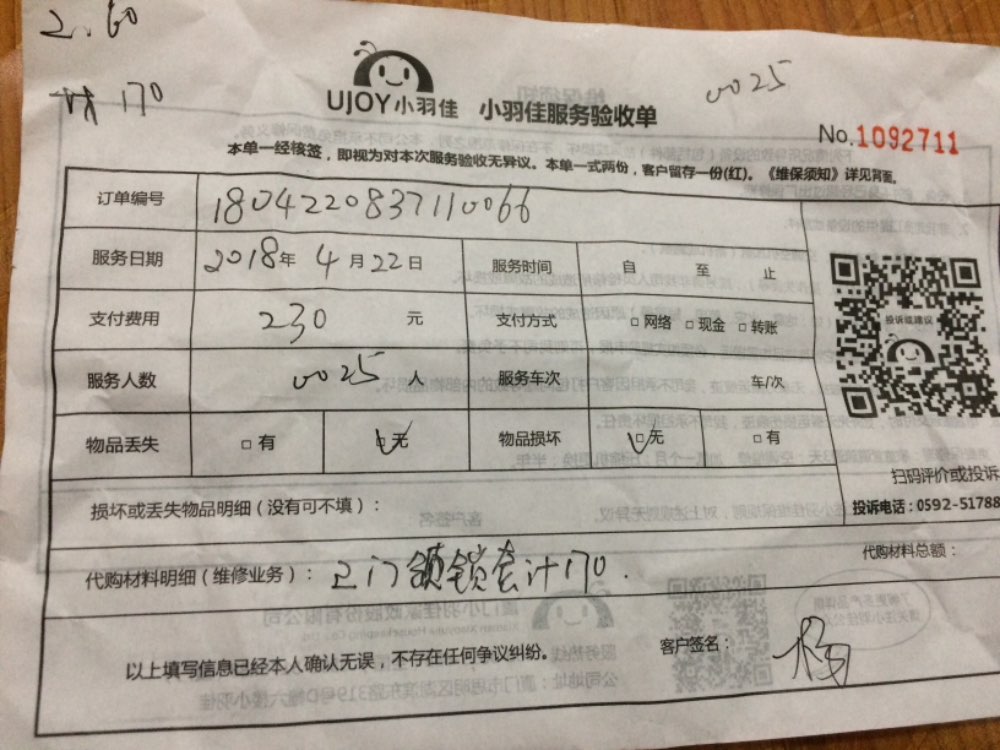 2.60
材 170
0025
UJOY小羽佳 小羽佳服务验收单
No.1092711
本单一经核签，即视为对本次服务验收无异议。本单一式两份，客户留存一份(红)。《维保须知》详见背面。
订单编号 1804220837110066
服务日期 2018年 4月22日 服务时间 自 至 止
支付费用 230 元 支付方式 □网络 □现金 □转账
投诉或建议
服务人数 0025 人 服务车次 车/次
物品丢失 □有 □无 物品损坏 □无 □有
扫码评价或投诉
损坏或丢失物品明细(没有可不填)：
投诉电话：0592-51788
代购材料明细(维修业务)： 计170.
代购材料总额：
以上填写信息已经本人确认无误，不存在任何争议纠纷。
客户签名：